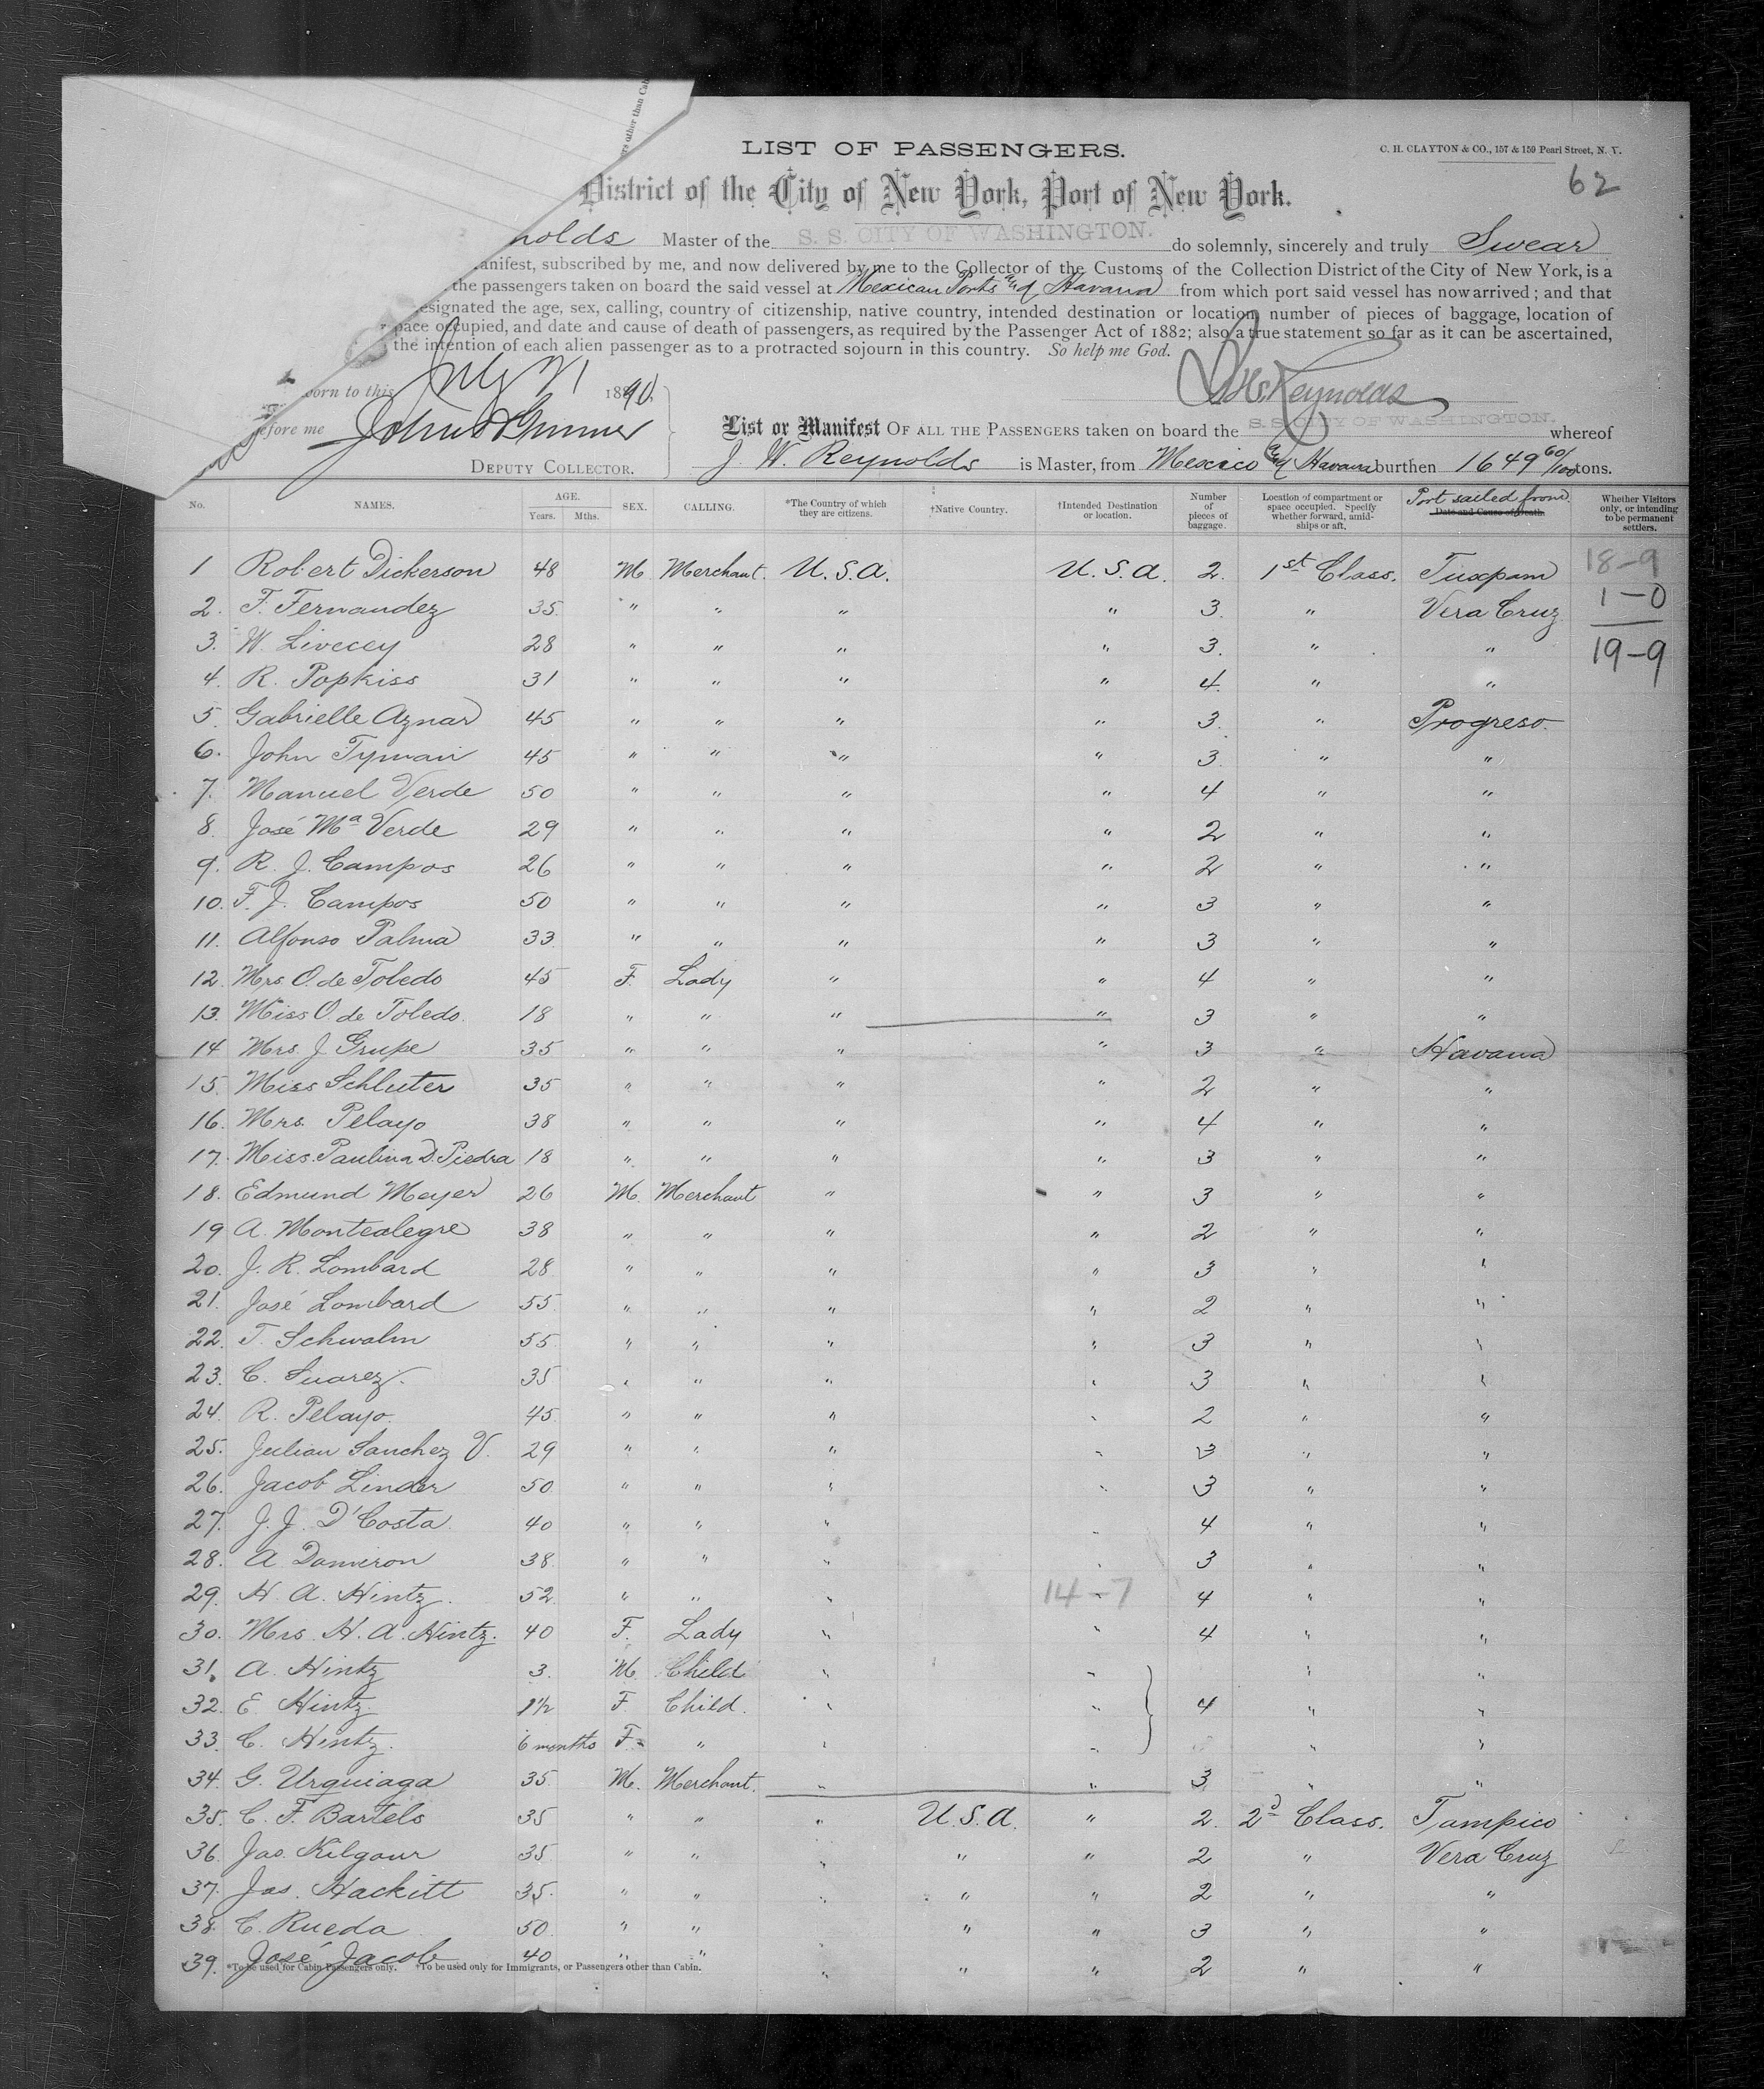 rs other than Cab
LIST OF PASSENGERS.
C. H. CLAYTON & CO., 157 & 159 Pearl Street, N. Y.
62
District of the City of New York, Port of New York.
nolds Master of the S. S. CITY OF WASHINGTON. do solemnly, sincerely and truly Swear
anifest, subscribed by me, and now delivered by me to the Collector of the Customs of the Collection District of the City of New York, is a
the passengers taken on board the said vessel at Mexican Ports and Havana from which port said vessel has now arrived; and that
esignated the age, sex, calling, country of citizenship, native country, intended destination or location, number of pieces of baggage, location of
pace occupied, and date and cause of death of passengers, as required by the Passenger Act of 1882; also a true statement so far as it can be ascertained,
the intention of each alien passenger as to a protracted sojourn in this country. So help me God.
orn to this July 21 1890
J. W. Reynolds
efore me
DEPUTY COLLECTOR.
List or Manifest OF ALL THE PASSENGERS taken on board the S. S. CITY OF WASHINGTON. whereof
J. W. Reynolds is Master, from Mexico and Havana burthen 1649 60/100 tons.
No. NAMES. AGE. Years. Mths. SEX. CALLING. *The Country of which they are citizens. †Native Country. †Intended Destination or location. Number of pieces of baggage. Location of compartment or space occupied. Specify whether forward, amidships or aft. Port sailed from. Date and Cause of Death. Whether Visitors only, or intending to be permanent settlers.
1 Robert Dickerson 48 M Merchant. U.S.A. U.S.A. 2. 1st Class. Tuxpam 18-9
2. F. Fernandez 35 " " " " 3. " Vera Cruz 1-0
3. W. Livecey 28 " " " " 3. " " 19-9
4. R. Popkiss 31 " " " " 4. " "
5. Gabrielle Aznar 45 " " " " 3. " Progreso.
6. John Tyman 45 " " " " 3. " "
7. Manuel Verde 50 " " " " 4 " "
8. José Ma Verde 29 " " " " 2 " "
9. R. J. Campos 26 " " " " 2 " "
10. F. J. Campos 50 " " " " 3 " "
11. Alfonso Palma 33 " " " " 3 " "
12. Mrs O. de Toledo 45 F. Lady " " 4 " "
13. Miss O. de Toledo. 18 " " " " 3 " "
14 Mrs. J Grupe 35 " " " " 3 " Havana
15. Miss Schluter 35 " " " " 2 " "
16. Mrs. Pelayo 38 " " " " 4 " "
17. Miss. Paulina D. Piedra 18 " " " " 3 " "
18. Edmund Meyer 26 M. Merchant " " 3 " "
19 A. Montealegre 38 " " " " 2 " "
20. J. R. Lombard 28 " " " " 3 " "
21. José Lombard 55 " " " " 2 " "
22. T. Schwalm 55 " " " " 3 " "
23. C. Suarez. 35 " " " " 3 " "
24. R. Pelayo. 45 " " " " 2 " "
25. Julian Sanchez V. 29 " " " " 3 " "
26. Jacob Linder 50 " " " " 3 " "
27. J. J. D'Costa 40 " " " " 4 " "
28. A. Dameron 38 " " " " 3 " "
29. H. A. Hintz. 52 " " " 14-7 " 4 " "
30. Mrs. H. A. Hintz. 40 F. Lady " " 4 " "
31. A. Hintz 3. M. Child " " " "
32. E Hintz. 1½ F Child. " " 4 " "
33. C. Hintz. 6 months F. " " " " "
34. G. Urquiaga 35 M. Merchant. " " 3 " "
35. C. F. Bartels 35 " " " U.S.A. " 2. 2d Class. Tampico
36. Jas. Kilgour 35 " " " " " 2 " Vera Cruz
37. Jas. Hackitt 35. " " " " " 2 " "
38. C. Rueda 50 " " " " 3 " "
39. José Jacob 40 " " " " " 2 " "
*To be used for Cabin Passengers only. †To be used only for Immigrants, or Passengers other than Cabin.